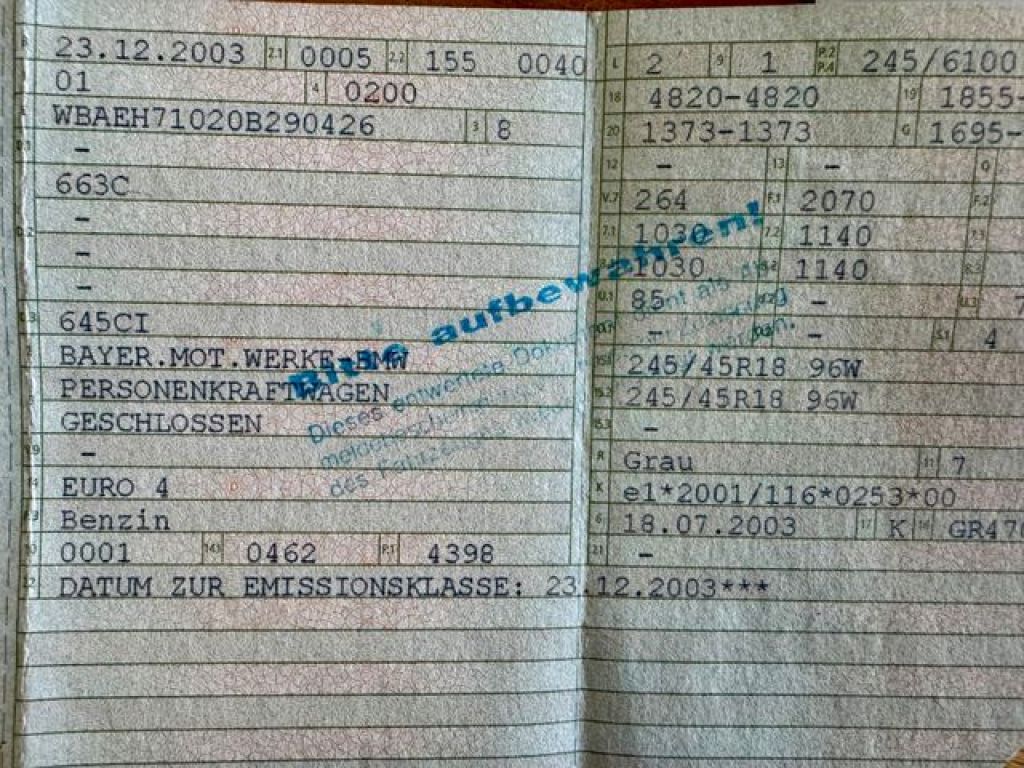 B 23.12.2003 2.1 0005 2.2 155 0040
01 4 0200
WBAEH71020B290426 3 8
–
663C
–
–
–
645CI
BAYER.MOT.WERKE-BMW
PERSONENKRAFTWAGEN
GESCHLOSSEN
–
EURO 4
Benzin
0001 14.1 0462 P.1 4398
DATUM ZUR EMISSIONSKLASSE: 23.12.2003***
L 2 9 1 P.2 P.4 245/6100
18 4820-4820 19 1855-
20 1373-1373 G 1695-
12 – 13 – Q
V.7 264 F.1 2070 F.2
7.1 1030 7.2 1140 7.3
1030 8.2 1140 8.3
U.1 85 U.2 – U.3 7
– – S.1 4
15.1 245/45R18 96W
15.2 245/45R18 96W
15.3 –
R Grau 11 7
K e1*2001/116*0253*00
6 18.07.2003 17 K 16 GR470
21 –
Bitte aufbewahren!
Dieses entwertete
des